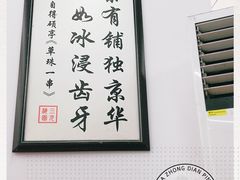 有铺独京华
如冰浸齿牙
自得硕亭《草珠一串》
ZHONG DIAN PIN